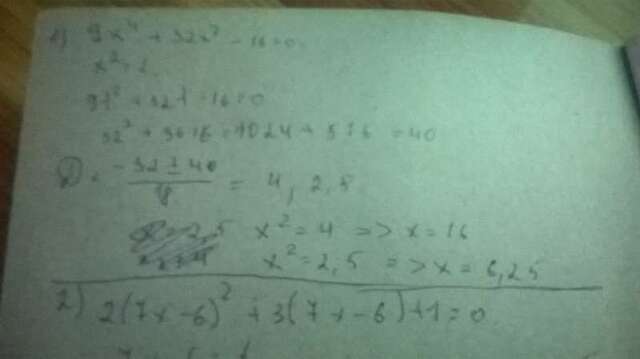 1) 9x⁴ + 32x² - 16 = 0
x² = t
9t² + 32t - 16 = 0
32² + 36·16 = 1024 + 576 = 40
= 4, 2.5
x² = 4 => x = 16
x² = 2,5 => x = 6,25
2) 2(7x - 6)² + 3(7x - 6) + 1 = 0